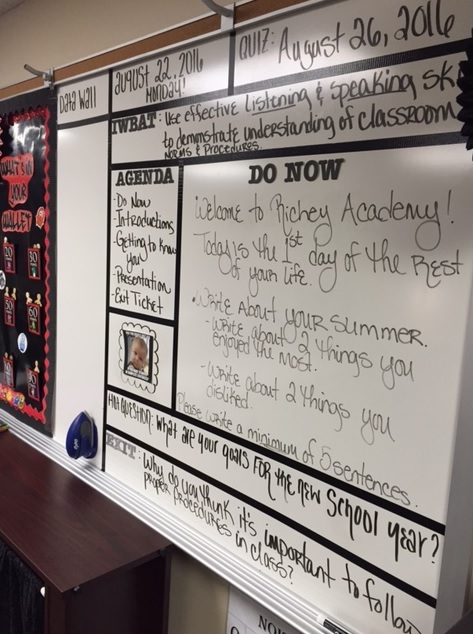 Data Wall
August 22, 2016
Monday!
Quiz: August 26, 2016
IWBAT: Use effective listening & speaking sk
to demonstrate understanding of classroom
norms & Procedures.
AGENDA
-Do Now
-Introductions
-Getting to know
you
-Presentation
-Exit Ticket
DO NOW
Welcome to Richey Academy!
Today is the 1st day of the Rest
of your life.
•Write About your summer.
-Write about 2 things you
enjoyed the most.
-Write about 2 things you
disliked.
Please write a minimum of 5 sentences.
QUESTION: What are your goals for the new School year?
EXIT: Why do you think it's important to follow
proper procedures in class?
WHAT'S IN
YOUR
WALLET
20
30
50
NOW